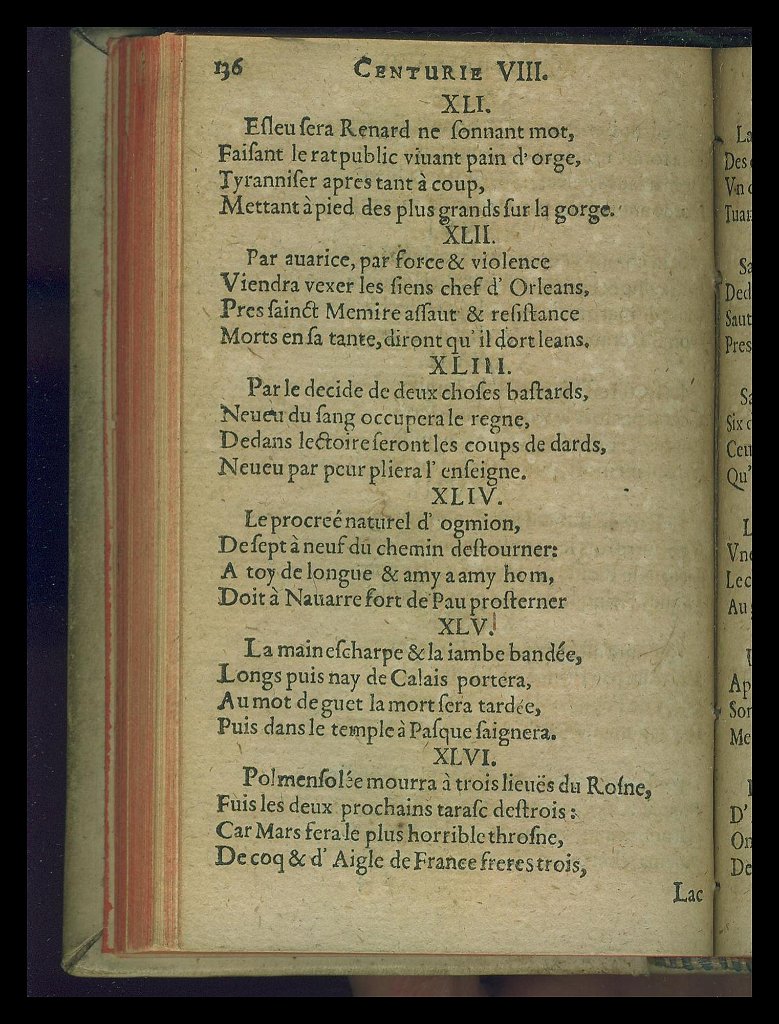 136 CENTURIE VIII.
XLI.
Eſleu ſera Renard ne ſonnant mot,
Faiſant le rat public viuant pain d'orge,
Tyranniſer apres tant à coup,
Mettant à pied des plus grands ſur la gorge.
XLII.
Par auarice, par force & violence
Viendra vexer les ſiens chef d'Orleans,
Pres ſainct Memire aſſaut & reſiſtance
Morts en ſa tante, diront qu'il dort leans.
XLIII.
Par le decide de deux choſes baſtards,
Neueu du ſang occupera le regne,
Dedans lectoire ſeront les coups de dards,
Neueu par peur pliera l'enſeigne.
XLIV.
Le procreé naturel d'ogmion,
De ſept à neuf du chemin deſtourner:
A toy de longue & amy a amy hom,
Doit à Nauarre fort de Pau proſterner
XLV.
La main eſcharpe & la iambe bandée,
Longs puis nay de Calais portera,
Au mot de guet la mort ſera tardée,
Puis dans le temple à Paſque ſaignera.
XLVI.
Pol menſolée mourra à trois lieuës du Roſne,
Fuis les deux prochains taraſc deſtrois:
Car Mars fera le plus horrible throſne,
De coq & d'Aigle de France freres trois,
Lac
La
Des
Vn
Tuan
Sa
Ded
Saut
Pres
Sa
Six
Ceu
Qu'
L
Vne
Lec
Au
Ap
Son
Me
D'
On
De